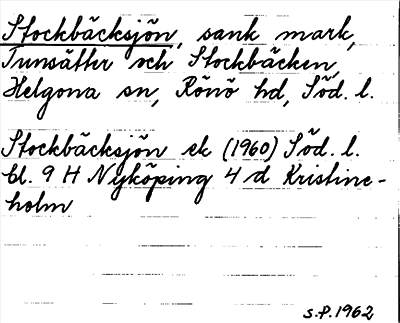 Stockbäcksjön, sank mark,
Tunsätter och Stockbäcken,
Helgona sn, Rönö hd, Söd. l.
Stockbäcksjön ek (1960) Söd. l.
bl. 9 H Nyköping 4 d Kristine-
holm
S.P. 1962